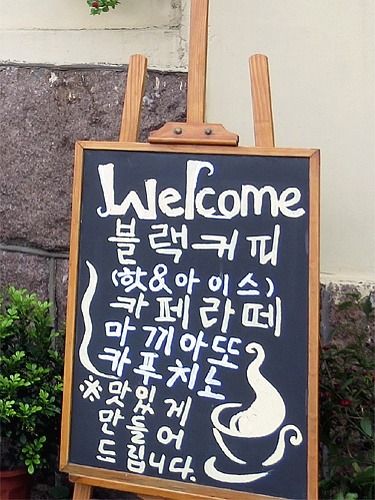 Welcome
블랙커피
(핫&아이스)
카페라떼
마끼아또
카푸치노
※맛있게
만들어
드립니다.